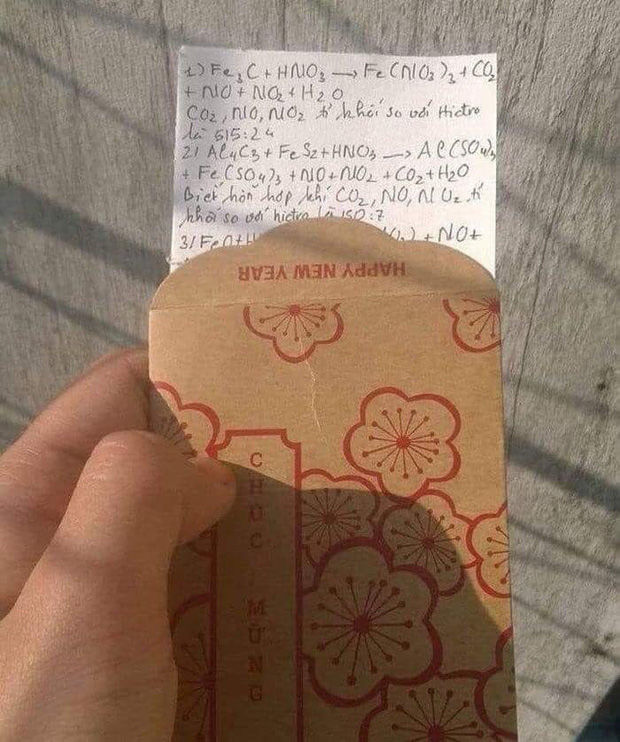 1) Fe3C + HNO3 → Fe(NO3)3 + CO2
+ NO + NO2 + H2O
CO2, NO, NO2 tỉ khối so với Hiđro
là 515:24
2) Al4C3 + FeS2 + HNO3 → Al(SO4)3
+ Fe(SO4)3 + NO + NO2 + CO2 + H2O
Biết hỗn hợp khí CO2, NO, NO2 tỉ
khối so với hiđro là 150:7
3) FeO + + NO +
HAPPY NEW YEAR
CHÚC MỪNG